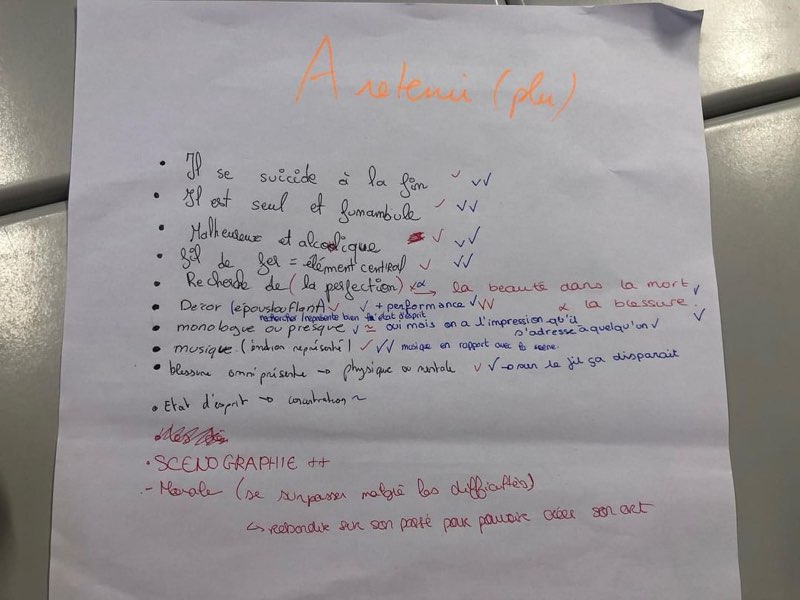 A retenir (plu)
• Il se suicide à la fin
• Il est seul et funambule
• Malheureux et alcoolique
• fil de fer = élément central
• Recherche de (la perfection) → la beauté dans la mort
• Decor (époustouflant) + performance & la blessure.
rechercher / représente bien l'état d'esprit
• monologue ou presque ≃ oui mais on a l'impression qu'il
s'adresse à quelqu'un
• musique ( représenté) musique en rapport avec la scène
• blessure omniprésente → physique ou mentale → sur le fil ça disparait
• Etat d'esprit → concentration ~
• SCENOGRAPHIE ++
- Morale (se surpasser malgré les difficultés)
↳ rebondir sur son passé pour pouvoir créer son art